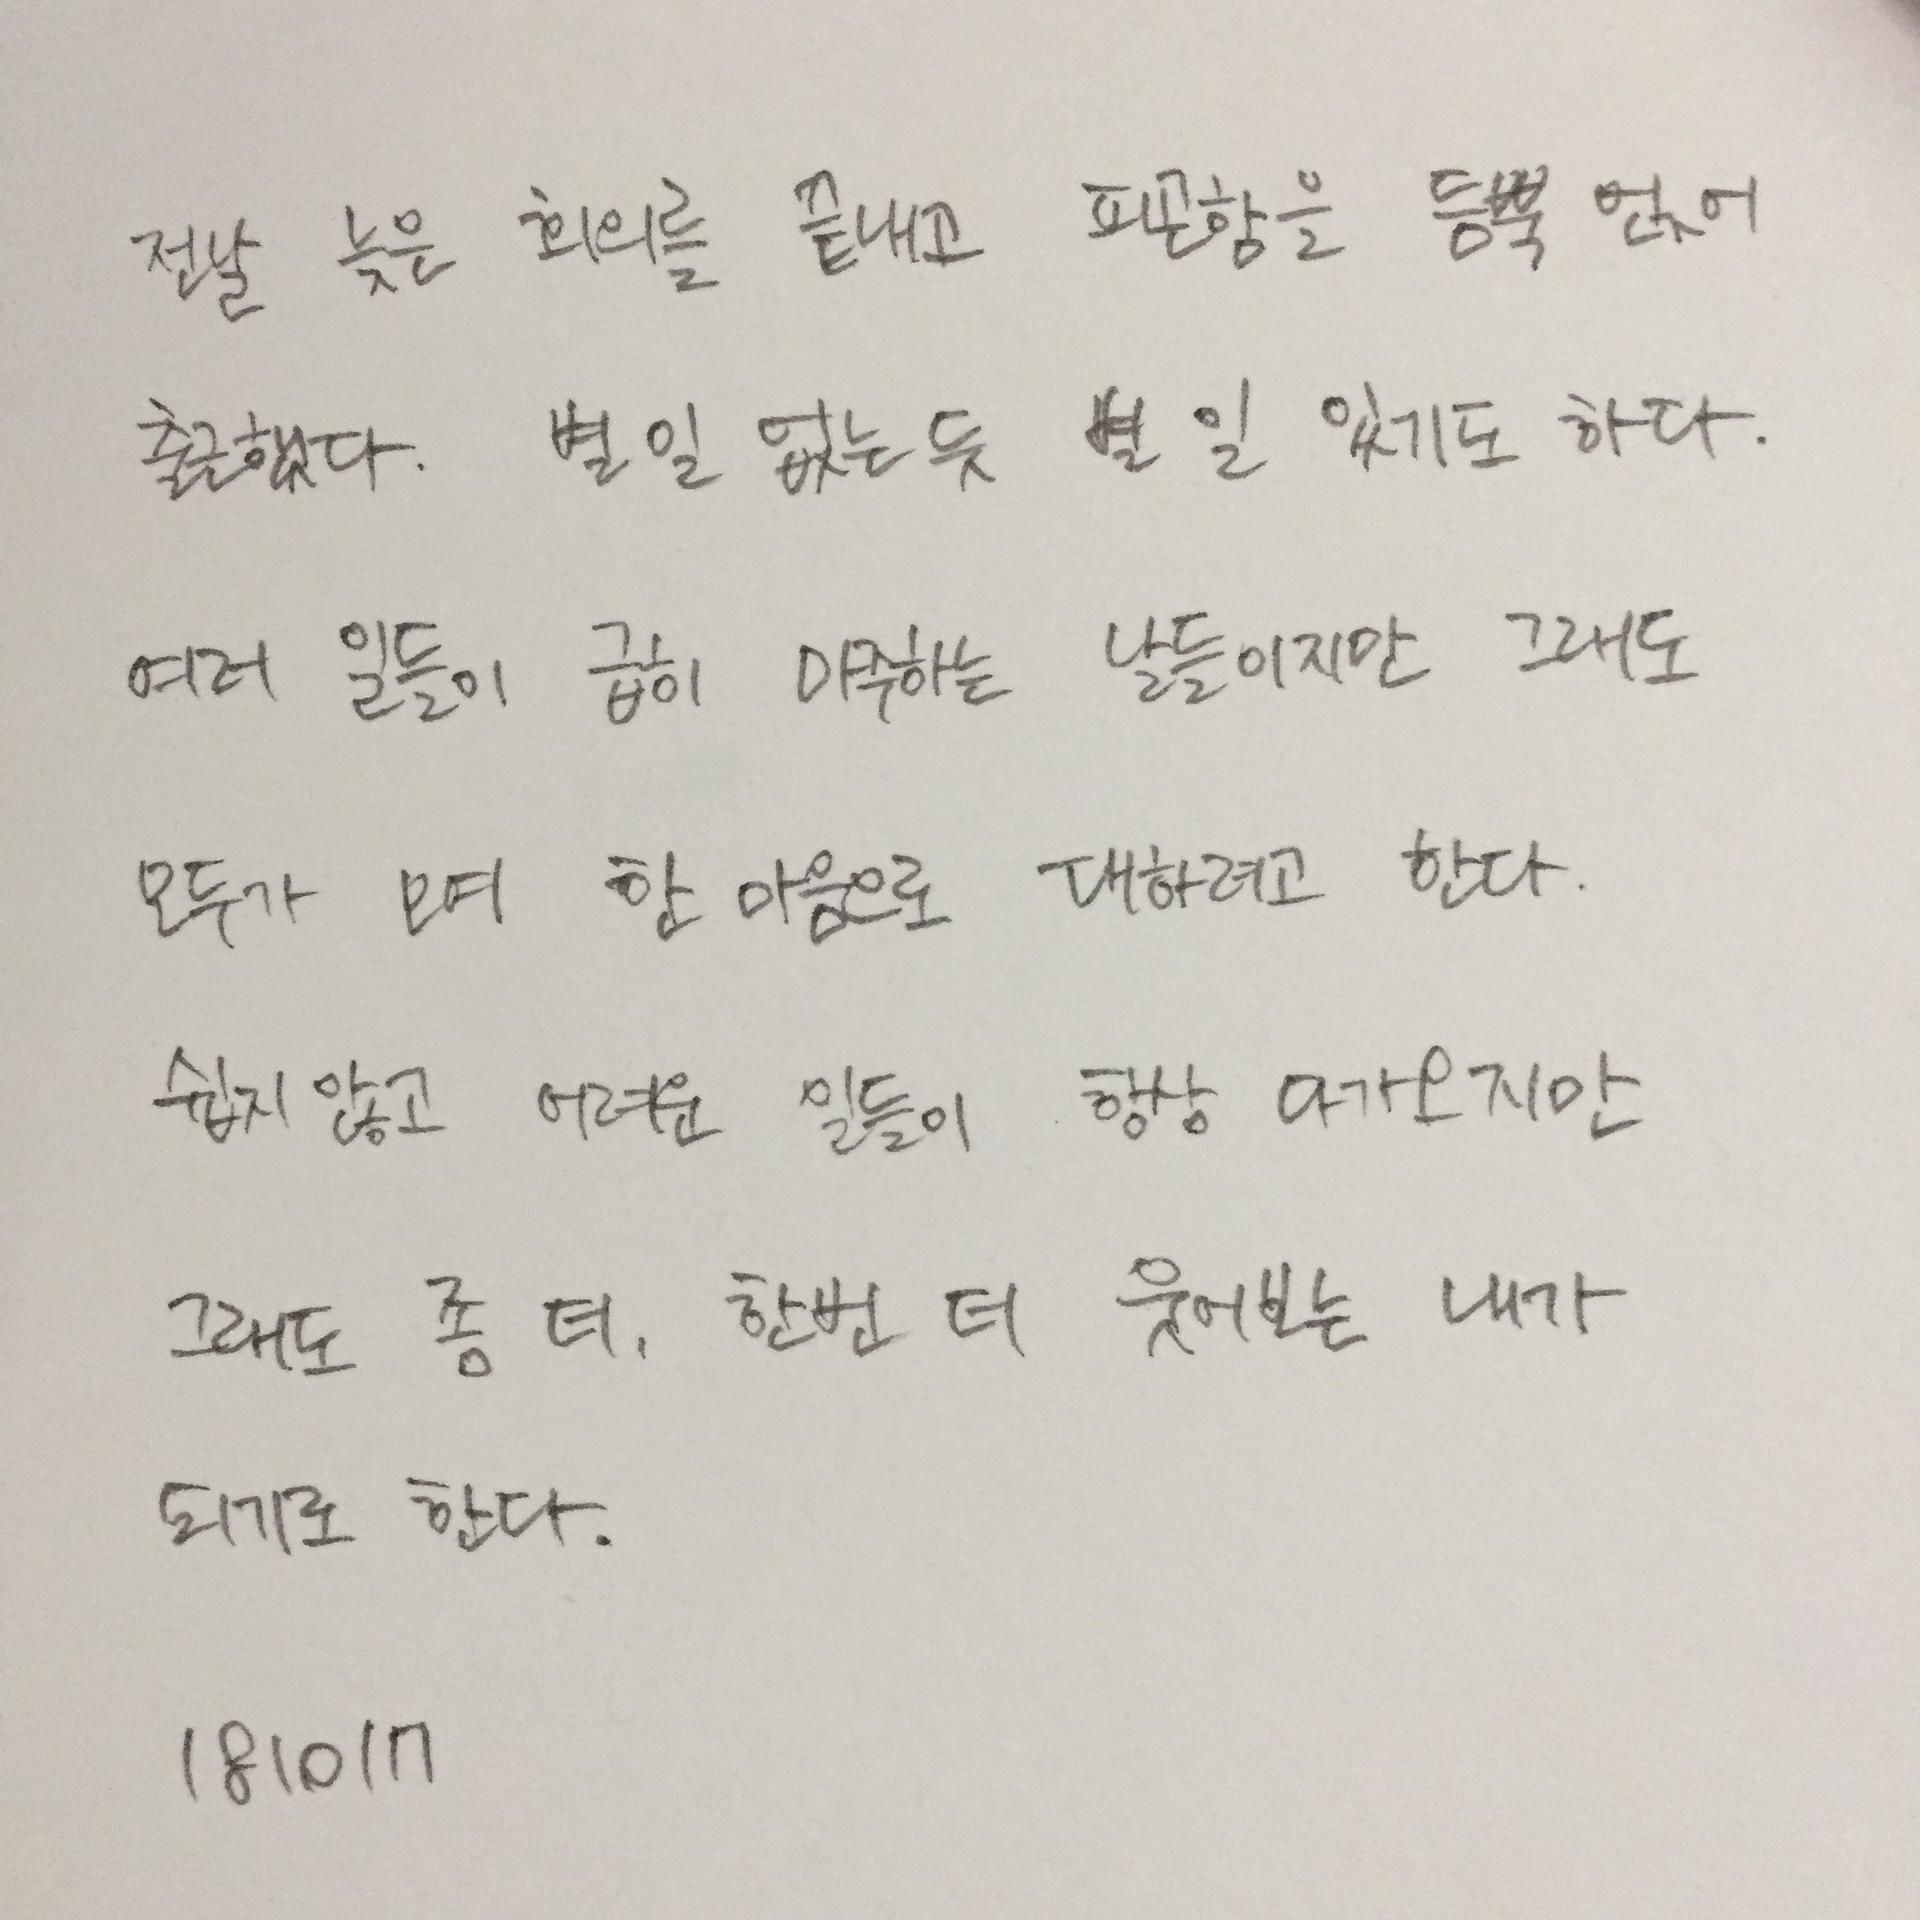 전날 늦은 회의를 끝내고 피곤함을 듬뿍 얹어
출근했다. 별 일 없는 듯 별 일 있기도 하다.
여러 일들이 급히 마주하는 날들이지만 그래도
모두가 모여 한 마음으로 대하려고 한다.
쉽지 않고 어려운 일들이 항상 다가오지만
그래도 좀 더, 한번 더 웃어보는 내가
되기로 한다.
181017